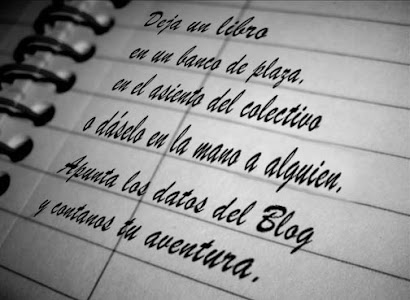 Deja un libro
en un banco de plaza,
en el asiento del colectivo
o dáselo en la mano a alguien.
Apunta los datos del Blog
y contanos tu aventura.